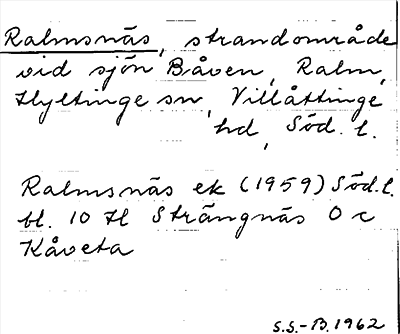 Ralmsnäs, strandområde
vid sjön Båven, Ralm,
Hyltinge sn, Villåttinge
hd, Söd. l.
Ralmsnäs ek (1959) Söd. l.
bl. 10 H Strängnäs O c
Kåveta
S.S.-B. 1962